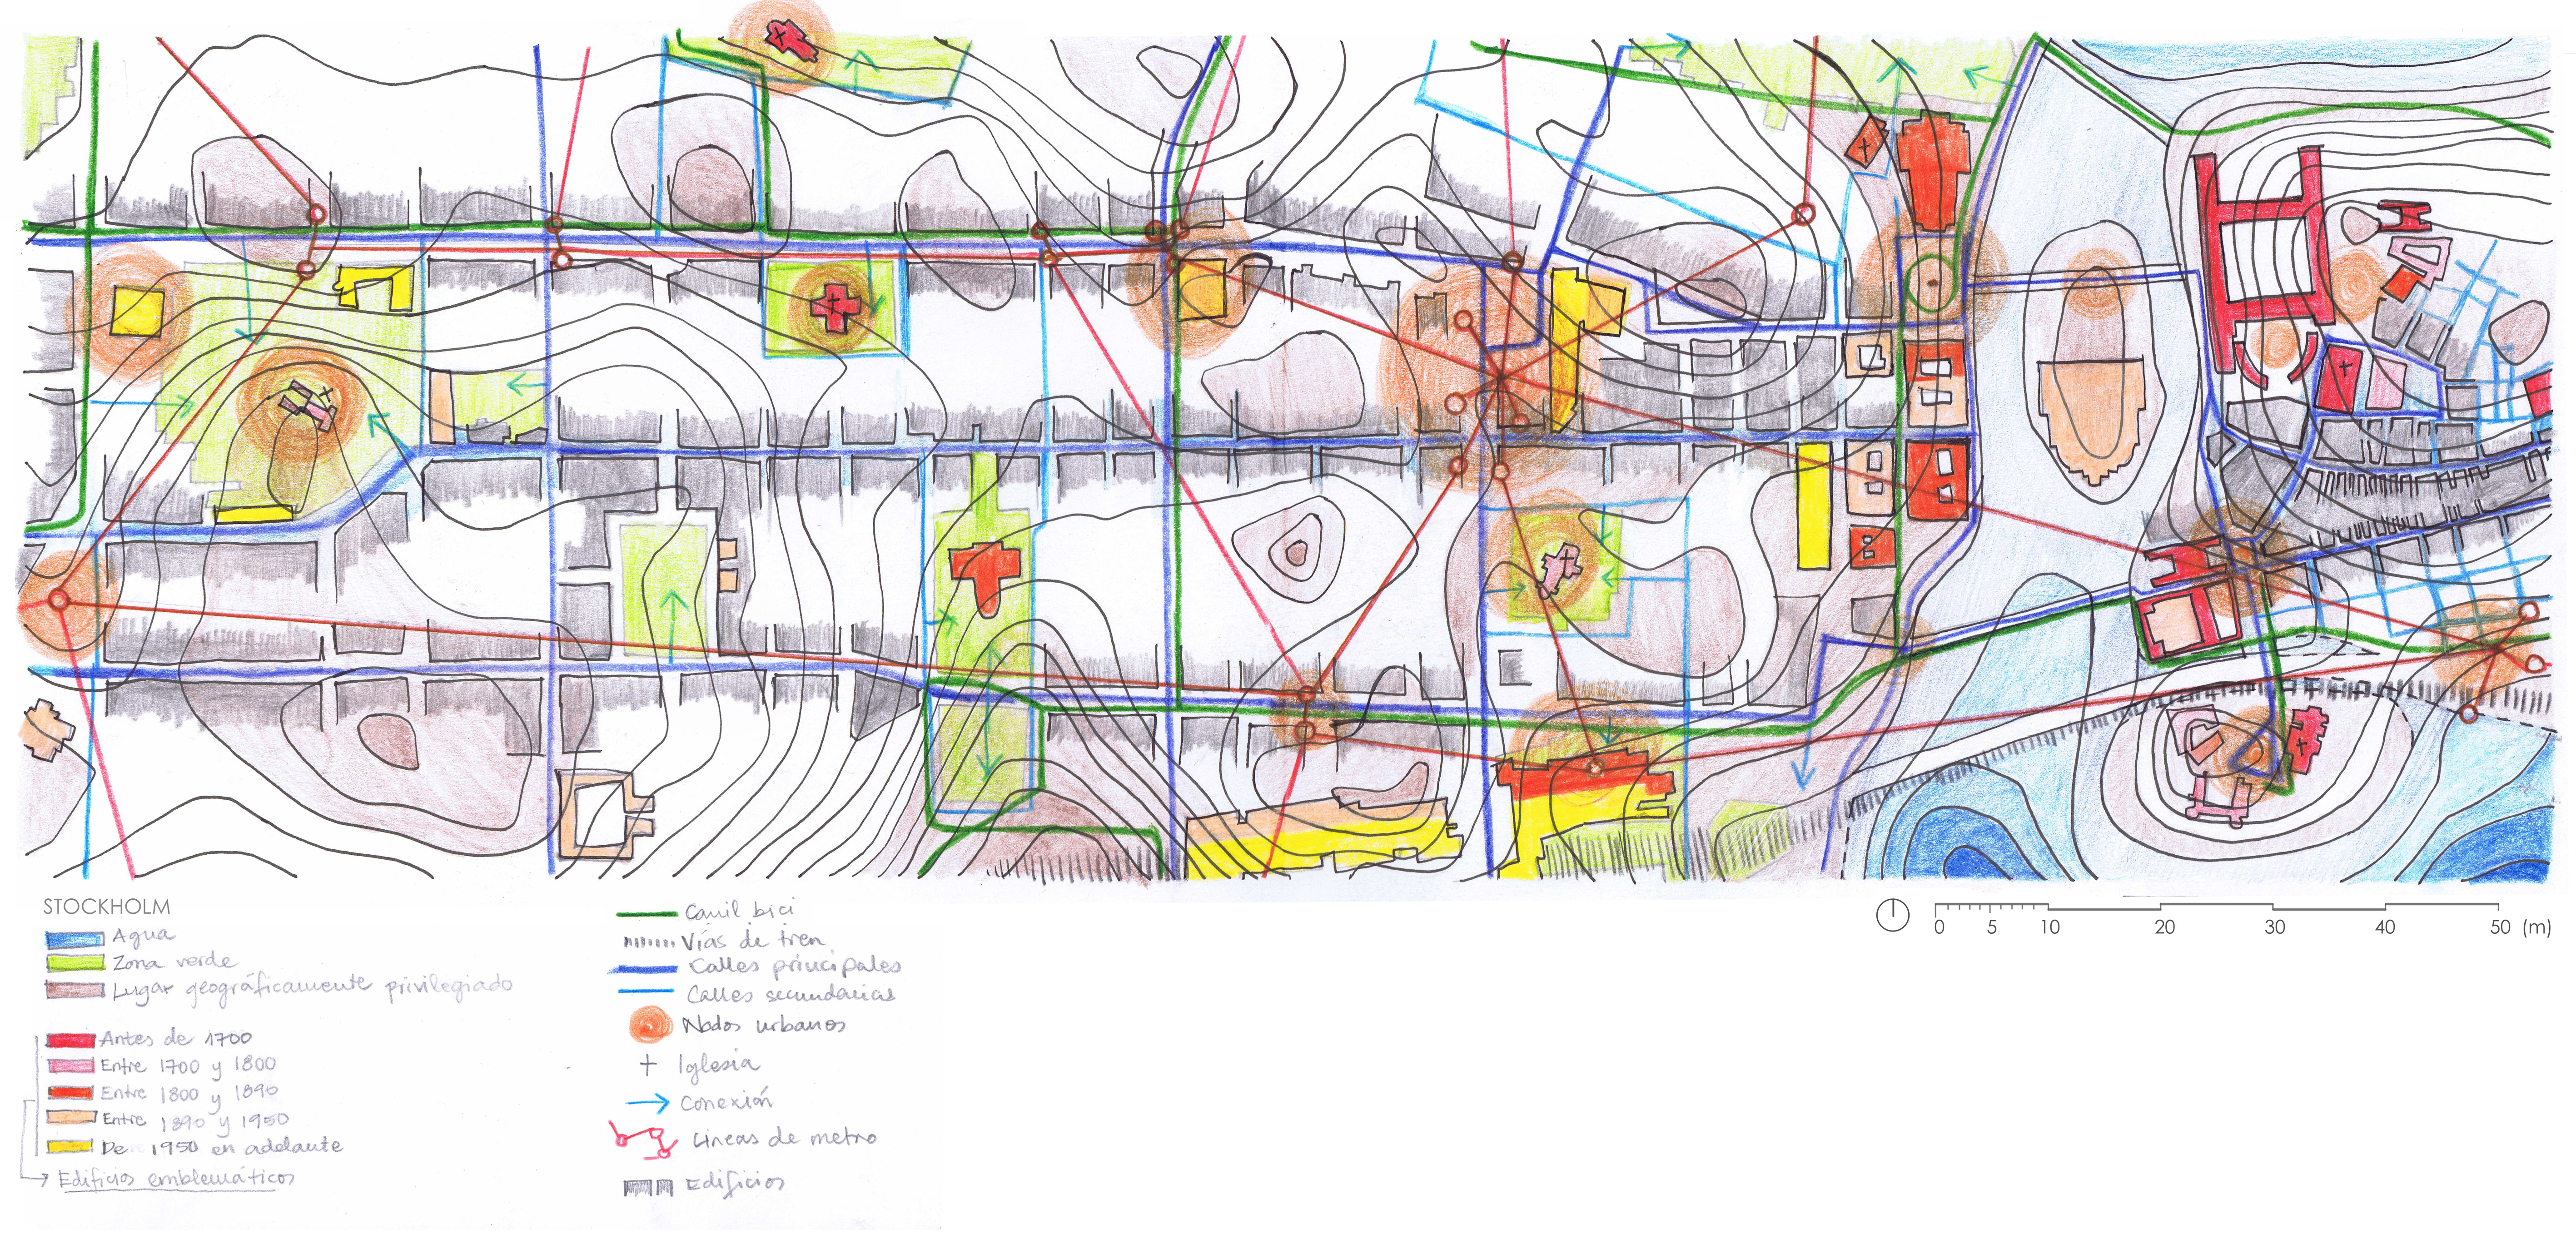 STOCKHOLM
Agua
Zona verde
Lugar geográficamente privilegiado
Antes de 1700
Entre 1700 y 1800
Entre 1800 y 1890
Entre 1890 y 1950
De 1950 en adelante
Edificios emblemáticos
Carril bici
Vías de tren
Calles principales
Calles secundarias
Nodos urbanos
Iglesia
Conexión
Líneas de metro
Edificios
0 5 10 20 30 40 50 (m)